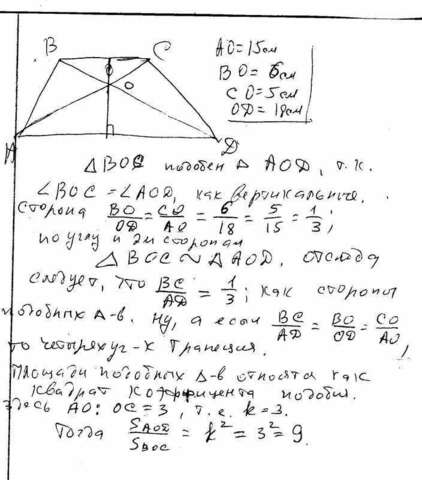 B
C
AO=15см
BO=6см
CO=5см
OD=18см
O
A
D
△BOC подобен △ AOD, т.к.
∠BOC=∠AOD, как вертикальные.
Сторона BO/OD = CO/AO = 6/18 = 5/15 = 1/3;
по углу и 2м сторонам
△BOC ~ △AOD. отсюда
следует, что BC/AD = 1/3; как стороны
подобных △-в. Ну, а если BC/AD = BO/OD = CO/AO,
то четырехуг-к трапеция.
Площади подобных △-в относятся как
квадрат коэффицента подобия.
Здесь AO:OC=3, т.е. k=3.
Тогда S AOD / S BOC = k² = 3² = 9